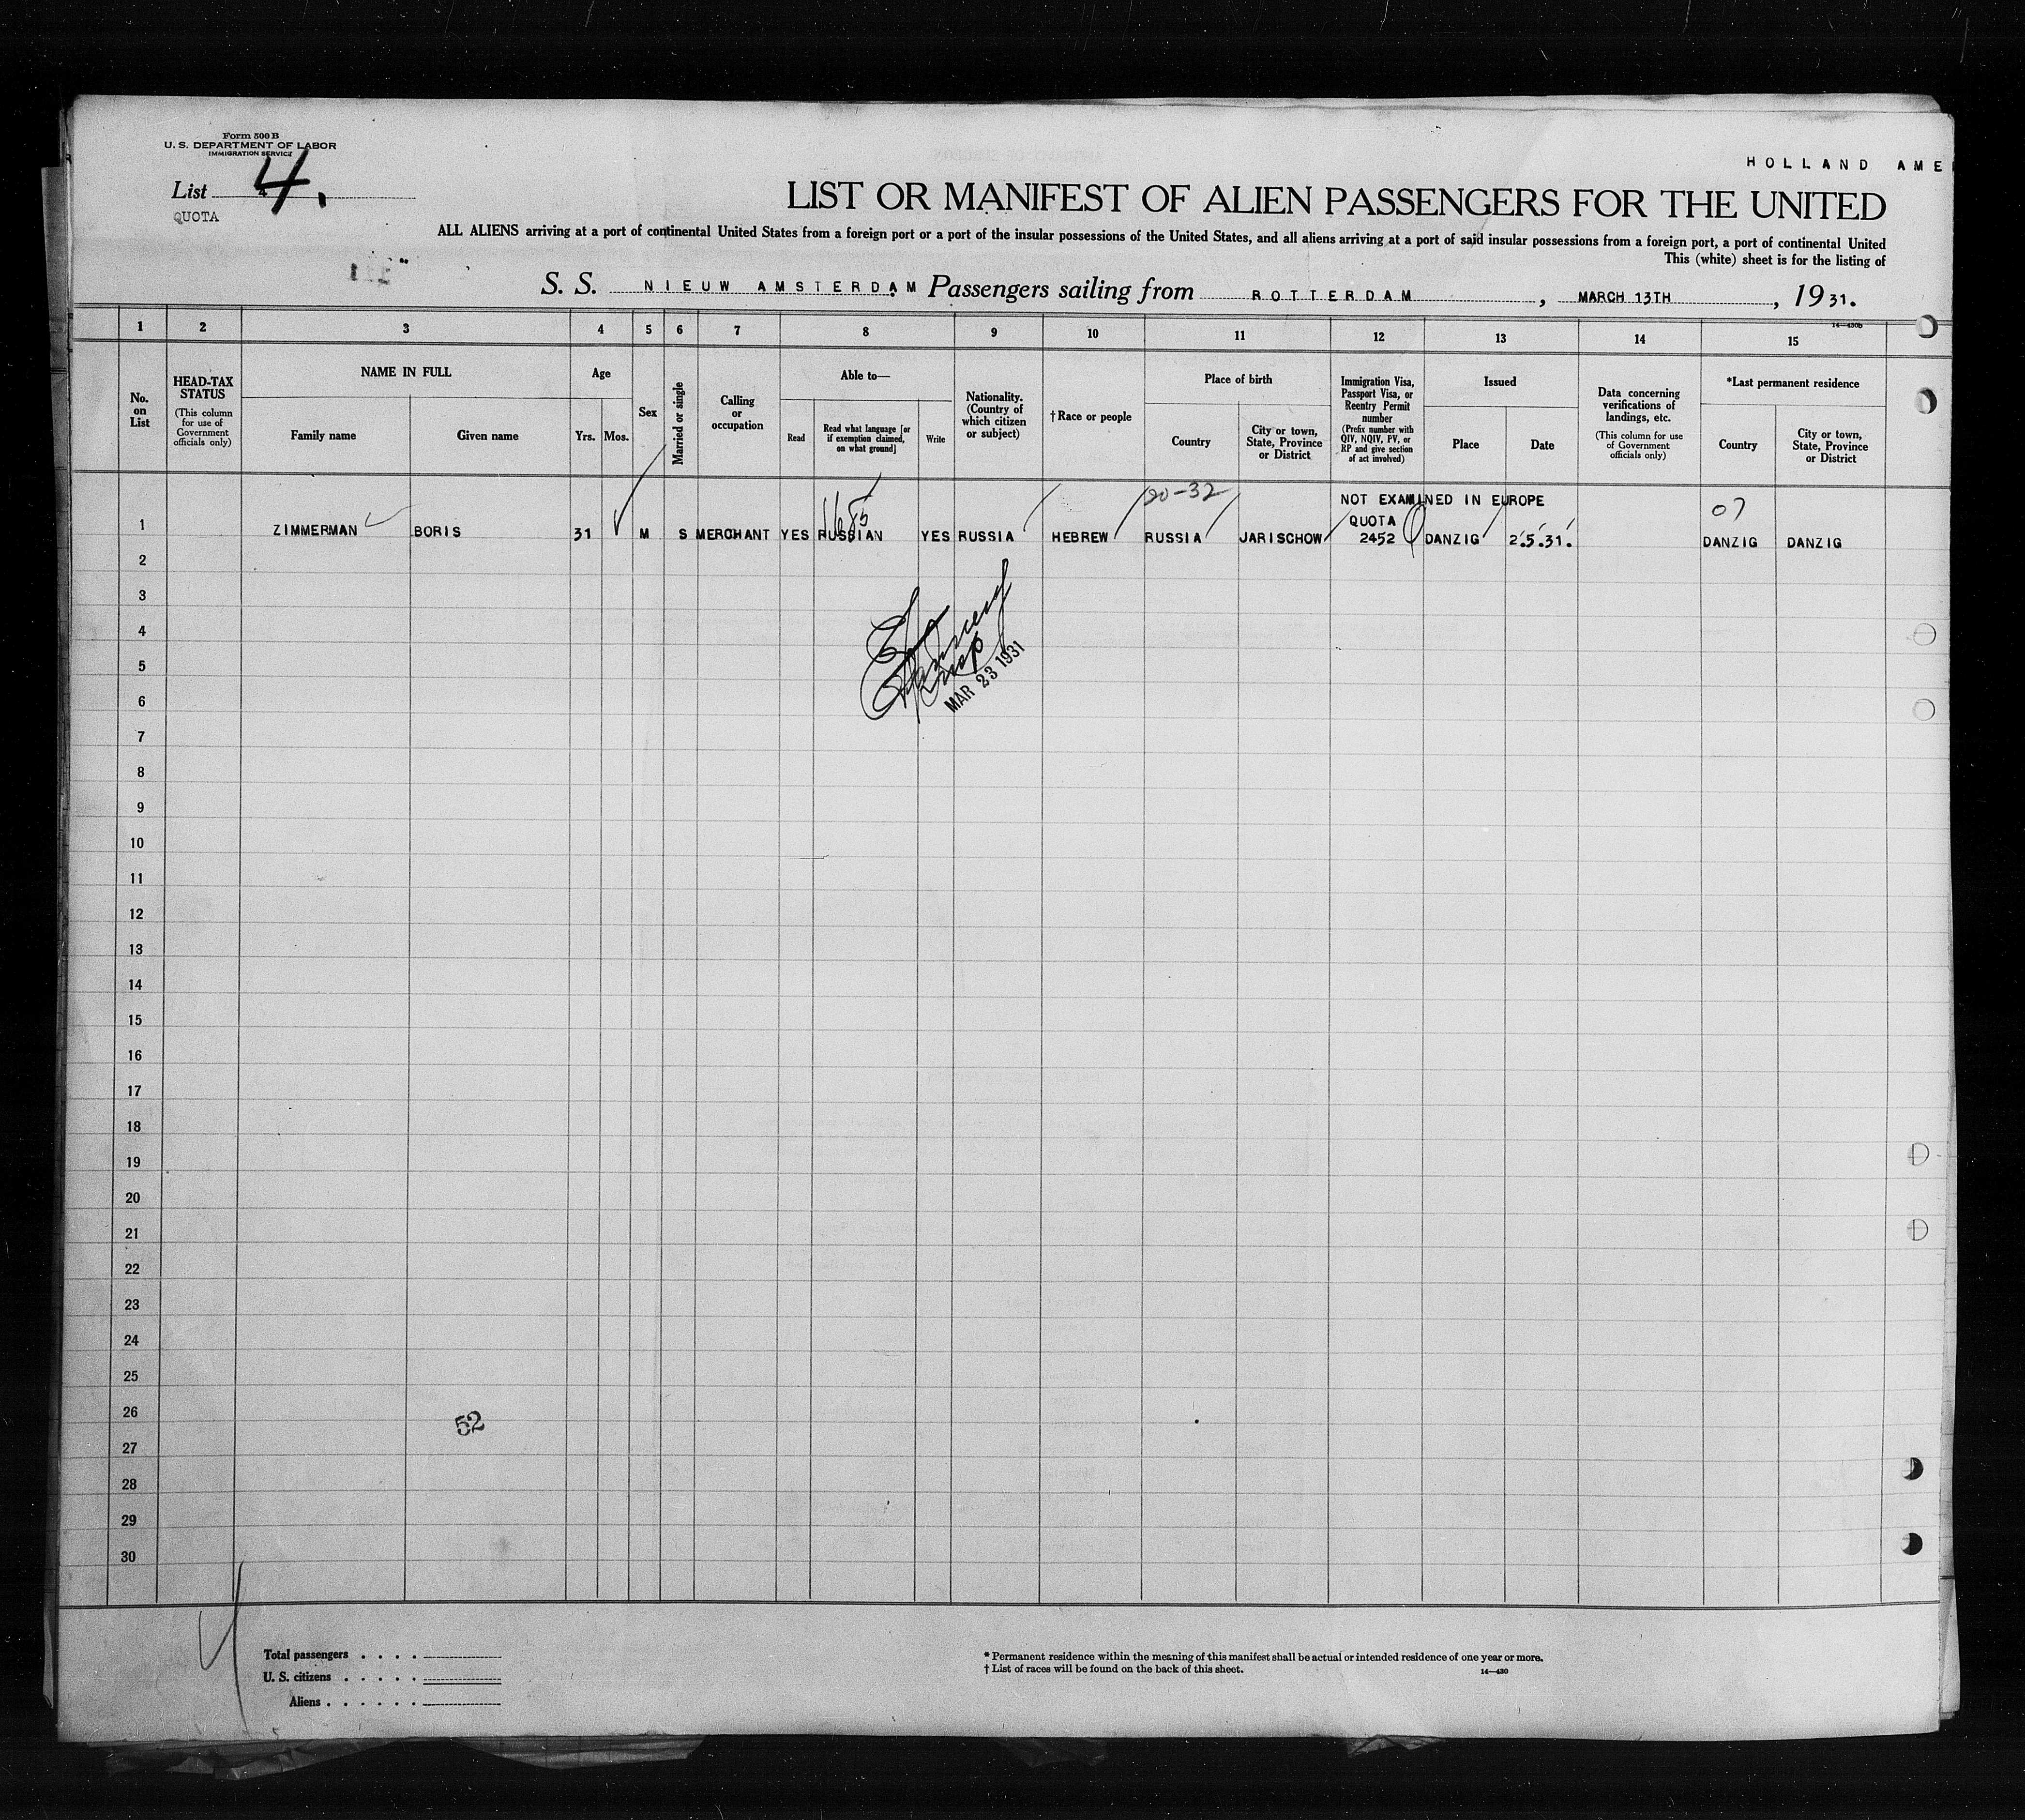 Form 500 B
U. S. DEPARTMENT OF LABOR
IMMIGRATION SERVICE
HOLLAND AME
List 4.
QUOTA
LIST OR MANIFEST OF ALIEN PASSENGERS FOR THE UNITED
ALL ALIENS arriving at a port of continental United States from a foreign port or a port of the insular possessions of the United States, and all aliens arriving at a port of said insular possessions from a foreign port, a port of continental United
This (white) sheet is for the listing of
S. S. NIEUW AMSTERDAM Passengers sailing from ROTTERDAM, MARCH 13TH, 1931.
14—430b
1 2 3 4 5 6 7 8 9 10 11 12 13 14 15
No. on List
HEAD-TAX STATUS
(This column for use of Government officials only)
NAME IN FULL
Family name
Given name
Age
Yrs.
Mos.
Sex
Married or single
Calling or occupation
Able to—
Read
Read what language [or if exemption claimed, on what ground]
Write
Nationality. (Country of which citizen or subject)
†Race or people
Place of birth
Country
City or town, State, Province or District
Immigration Visa, Passport Visa, or Reentry Permit number
(Prefix number with QIV, NQIV, PV, or RP and give section of act involved)
Issued
Place
Date
Data concerning verifications of landings, etc.
(This column for use of Government officials only)
*Last permanent residence
Country
City or town, State, Province or District
20-32
NOT EXAMINED IN EUROPE
1685
QUOTA
07
1 ZIMMERMAN BORIS 31 M S MERCHANT YES RUSSIAN YES RUSSIA HEBREW RUSSIA JARISCHOW 2452 DANZIG 2.5.31. DANZIG DANZIG
2
3
4
5
MAR 23 1931
6
7
8
9
10
11
12
13
14
15
16
17
18
19
20
21
22
23
24
25
26
52
27
28
29
30
Total passengers . . . .
U. S. citizens . . . . .
Aliens . . . . . .
* Permanent residence within the meaning of this manifest shall be actual or intended residence of one year or more.
† List of races will be found on the back of this sheet.
14—430